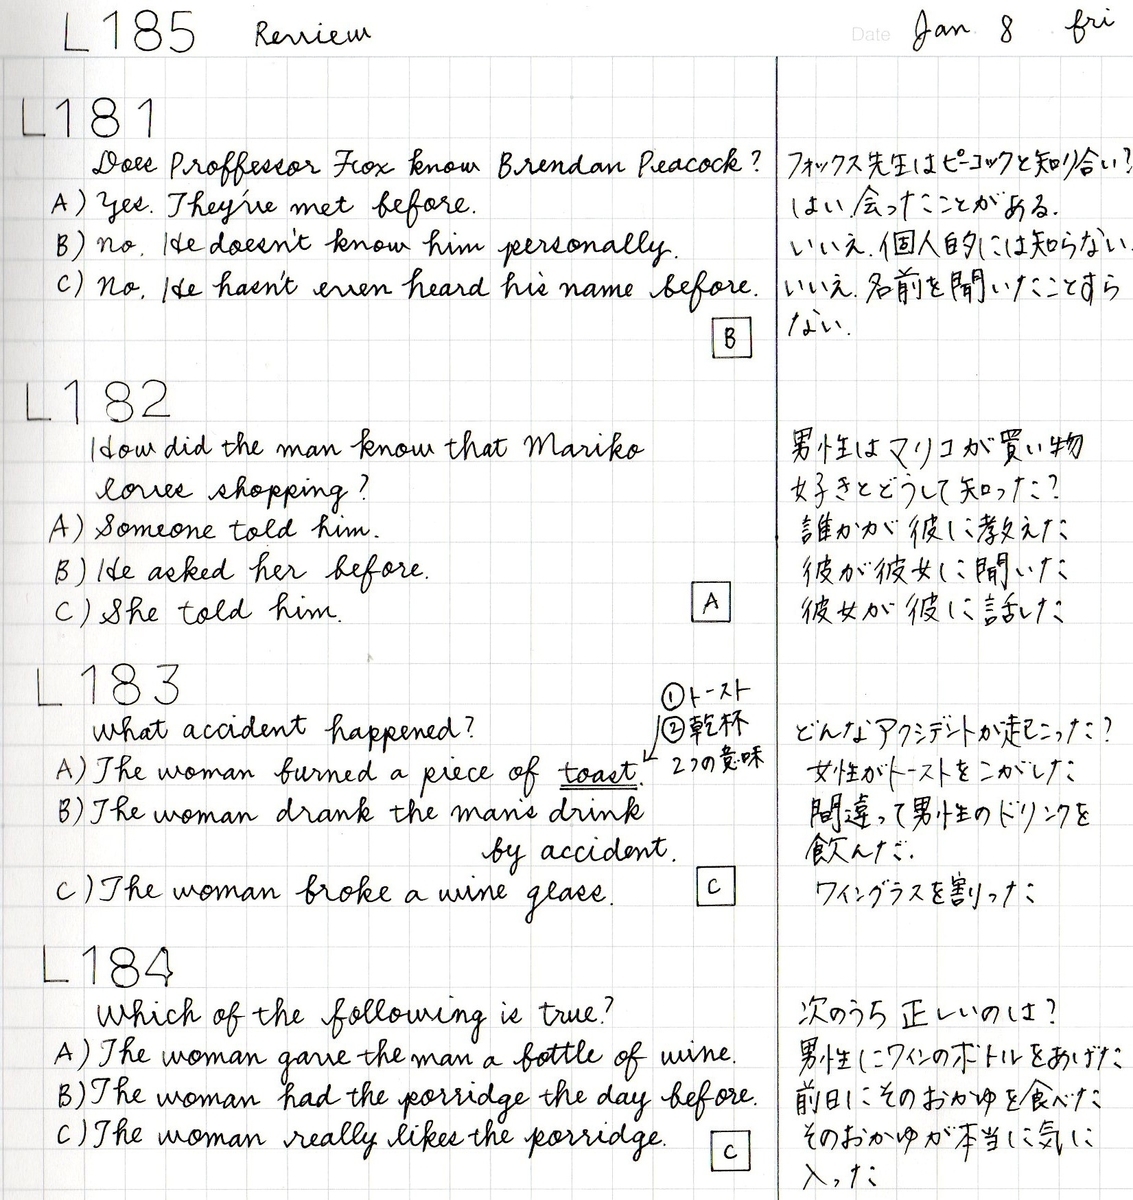 L185 Review Date Jan 8 fri
L181
Does Proffessor Fox know Brendan Peacock?
A) Yes. They've met before.
B) No. He doesn't know him personally.
C) No. He hasn't even heard his name before.
B
フォックス先生はピーコックと知り合い?
はい.会ったことがある.
いいえ.個人的には知らない.
いいえ.名前を聞いたことすら
ない.
L182
How did the man know that Mariko
loves shopping?
A) Someone told him.
B) He asked her before.
C) She told him.
A
男性はマリコが買い物
好きとどうして知った?
誰かが彼に教えた
彼が彼女に聞いた
彼女が彼に話した
L183
What accident happened?
A) The woman burned a piece of toast.
B) The woman drank the man's drink
by accident.
C) The woman broke a wine glass.
①トースト
②乾杯
2つの意味
C
どんなアクシデントが起こった?
女性がトーストをこがした
間違って男性のドリンクを
飲んだ.
ワイングラスを割った
L184
Which of the following is true?
A) The woman gave the man a bottle of wine.
B) The woman had the porridge the day before.
C) The woman really likes the porridge.
C
次のうち正しいのは?
男性にワインのボトルをあげた
前日にそのおかゆを食べた
そのおかゆが本当に気に
入った